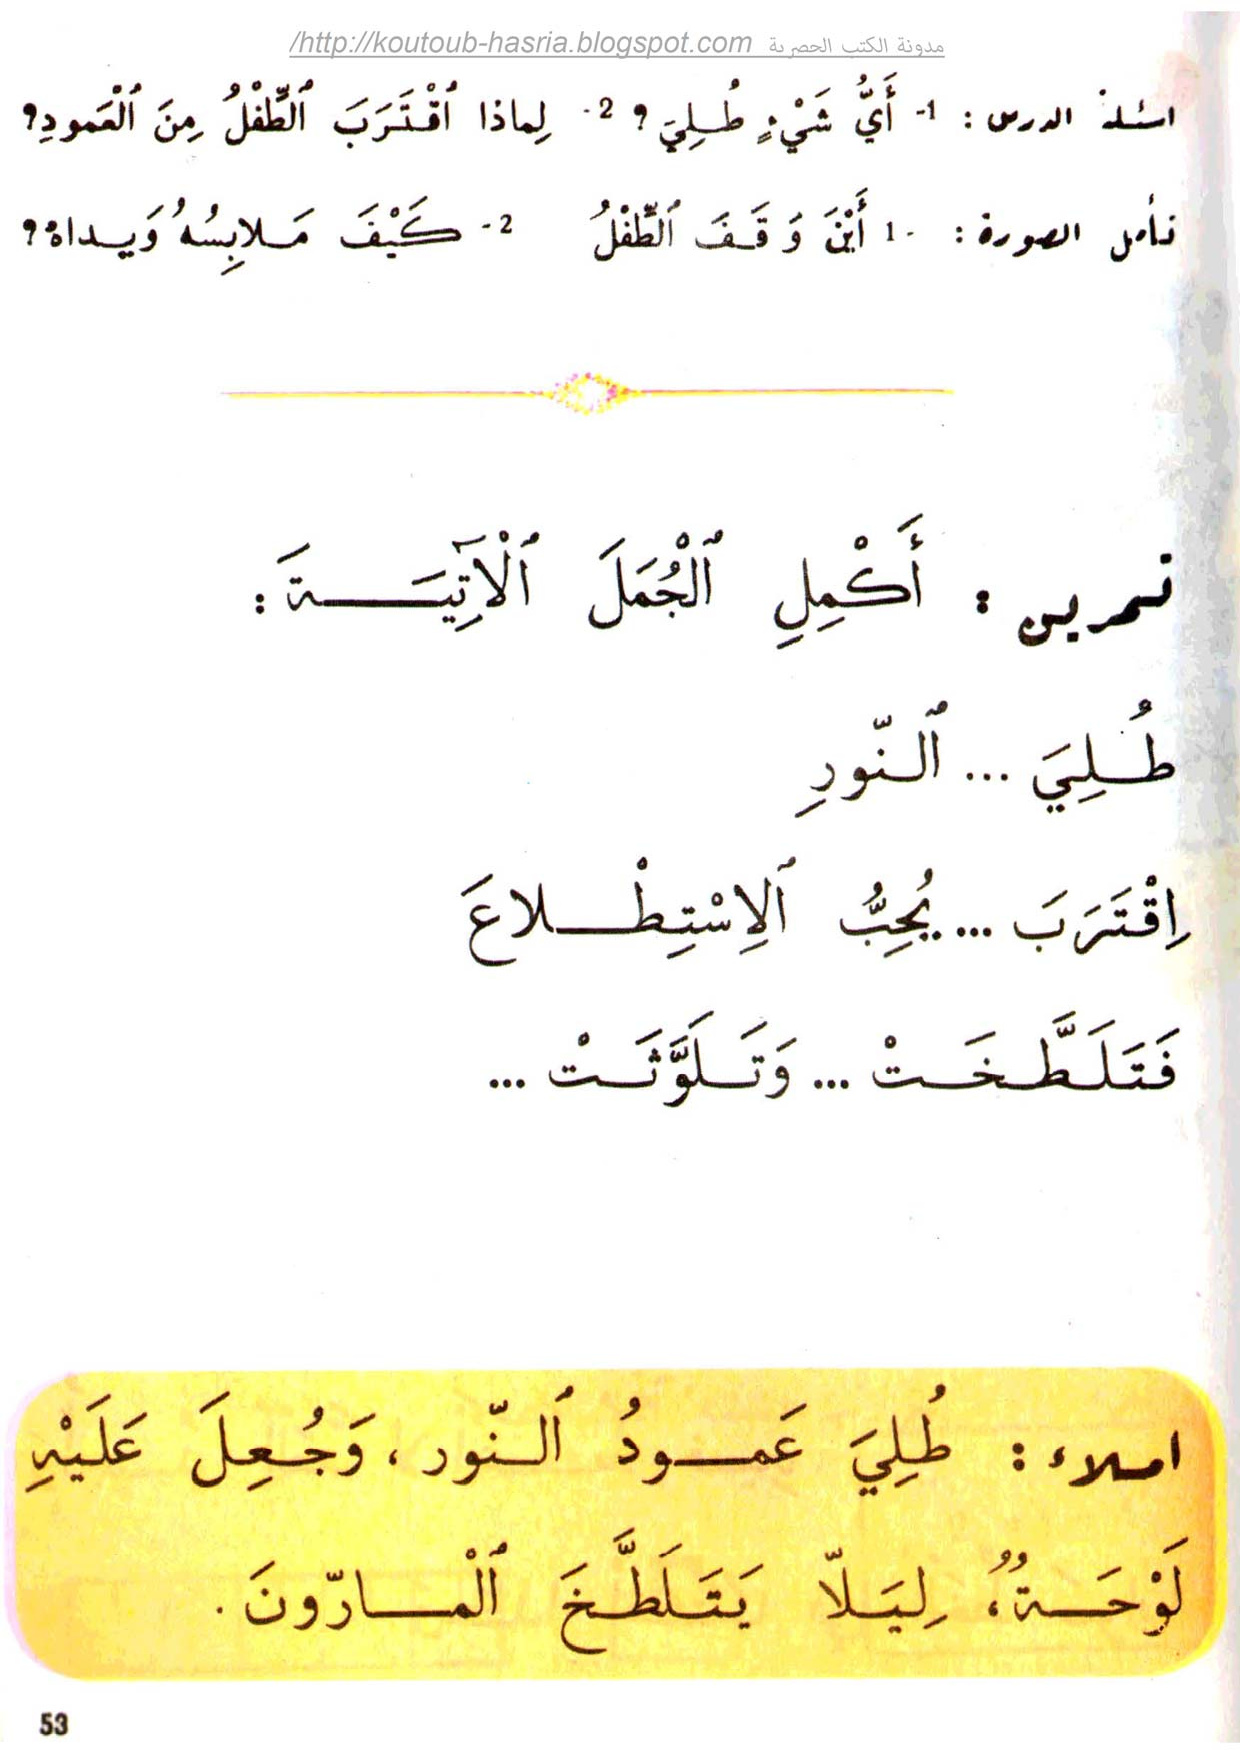 مدونة الكتب الحصرية http://koutoub-hasria.blogspot.com/
اسئلة الدرس : 1- أَيُّ شَيْءٍ طُلِيَ ؟ 2- لِماذا ٱقْتَرَبَ ٱلطِّفْلُ مِنَ ٱلْعَمودِ؟
تأمل الصورة : 1- أَيْنَ وَقَفَ ٱلطِّفْلُ 2- كَيْفَ مَلابِسُهُ وَيداهُ؟
تمرين : أَكْمِلِ ٱلْجُمَلَ ٱلْآتِيَةَ :
طُلِيَ ... ٱلنّورِ
اِقْتَرَبَ ... يُحِبُّ ٱلِاسْتِطْلاعَ
فَتَلَطَّخَتْ ... وَتَلَوَّثَتْ ...
املاء : طُلِيَ عَمودُ ٱلنّور ، وَجُعِلَ عَلَيْهِ
لَوْحَةٌ، لِيَلاّ يَتَلَطَّخَ ٱلْمارّونَ .
53